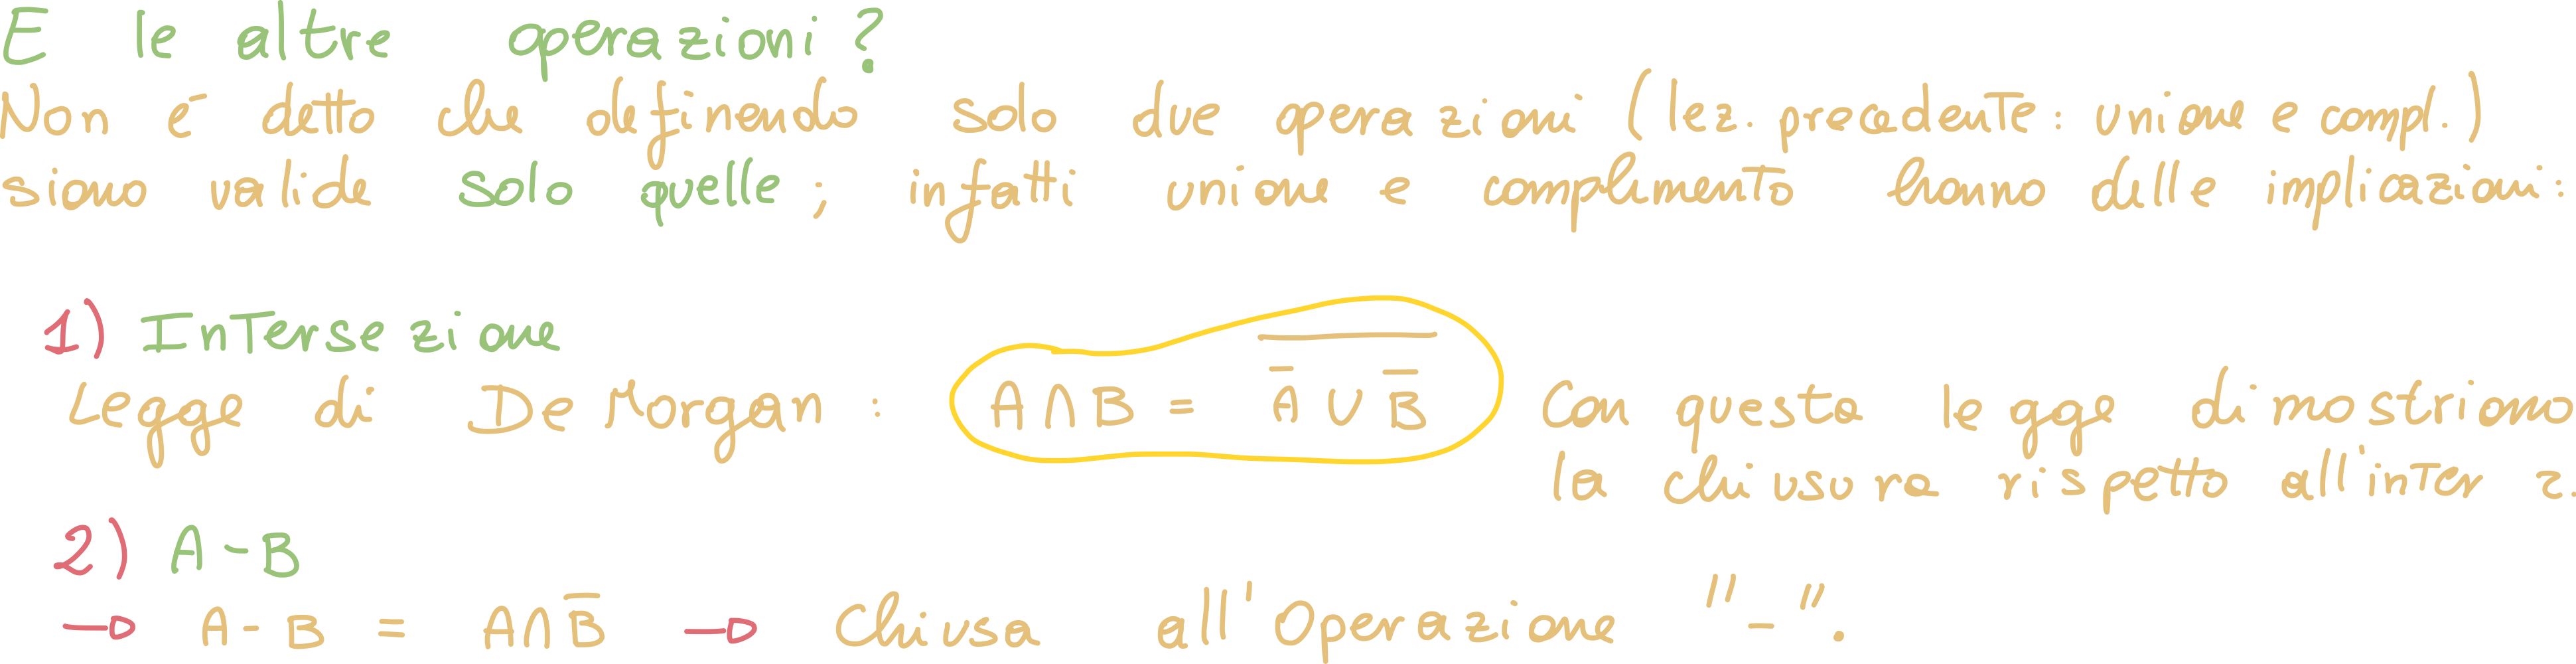 E le altre operazioni?
Non é detto che definendo solo due operazioni (lez. precedente: unione e compl.)
siano valide solo quelle; infatti unione e complemento hanno delle implicazioni:
1) Intersezione
Legge di De Morgan: A∩B = \overline{\overline{A} ∪ \overline{B}} Con questa legge dimostriamo
la chiusura rispetto all'inter z.
2) A-B
→ A-B = A∩\overline{B} → Chiusa all'Operazione "-".